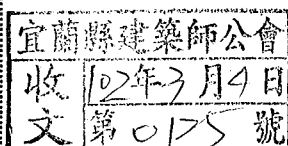 宜蘭縣建築師公會
收文
102年3月4日
第0125號